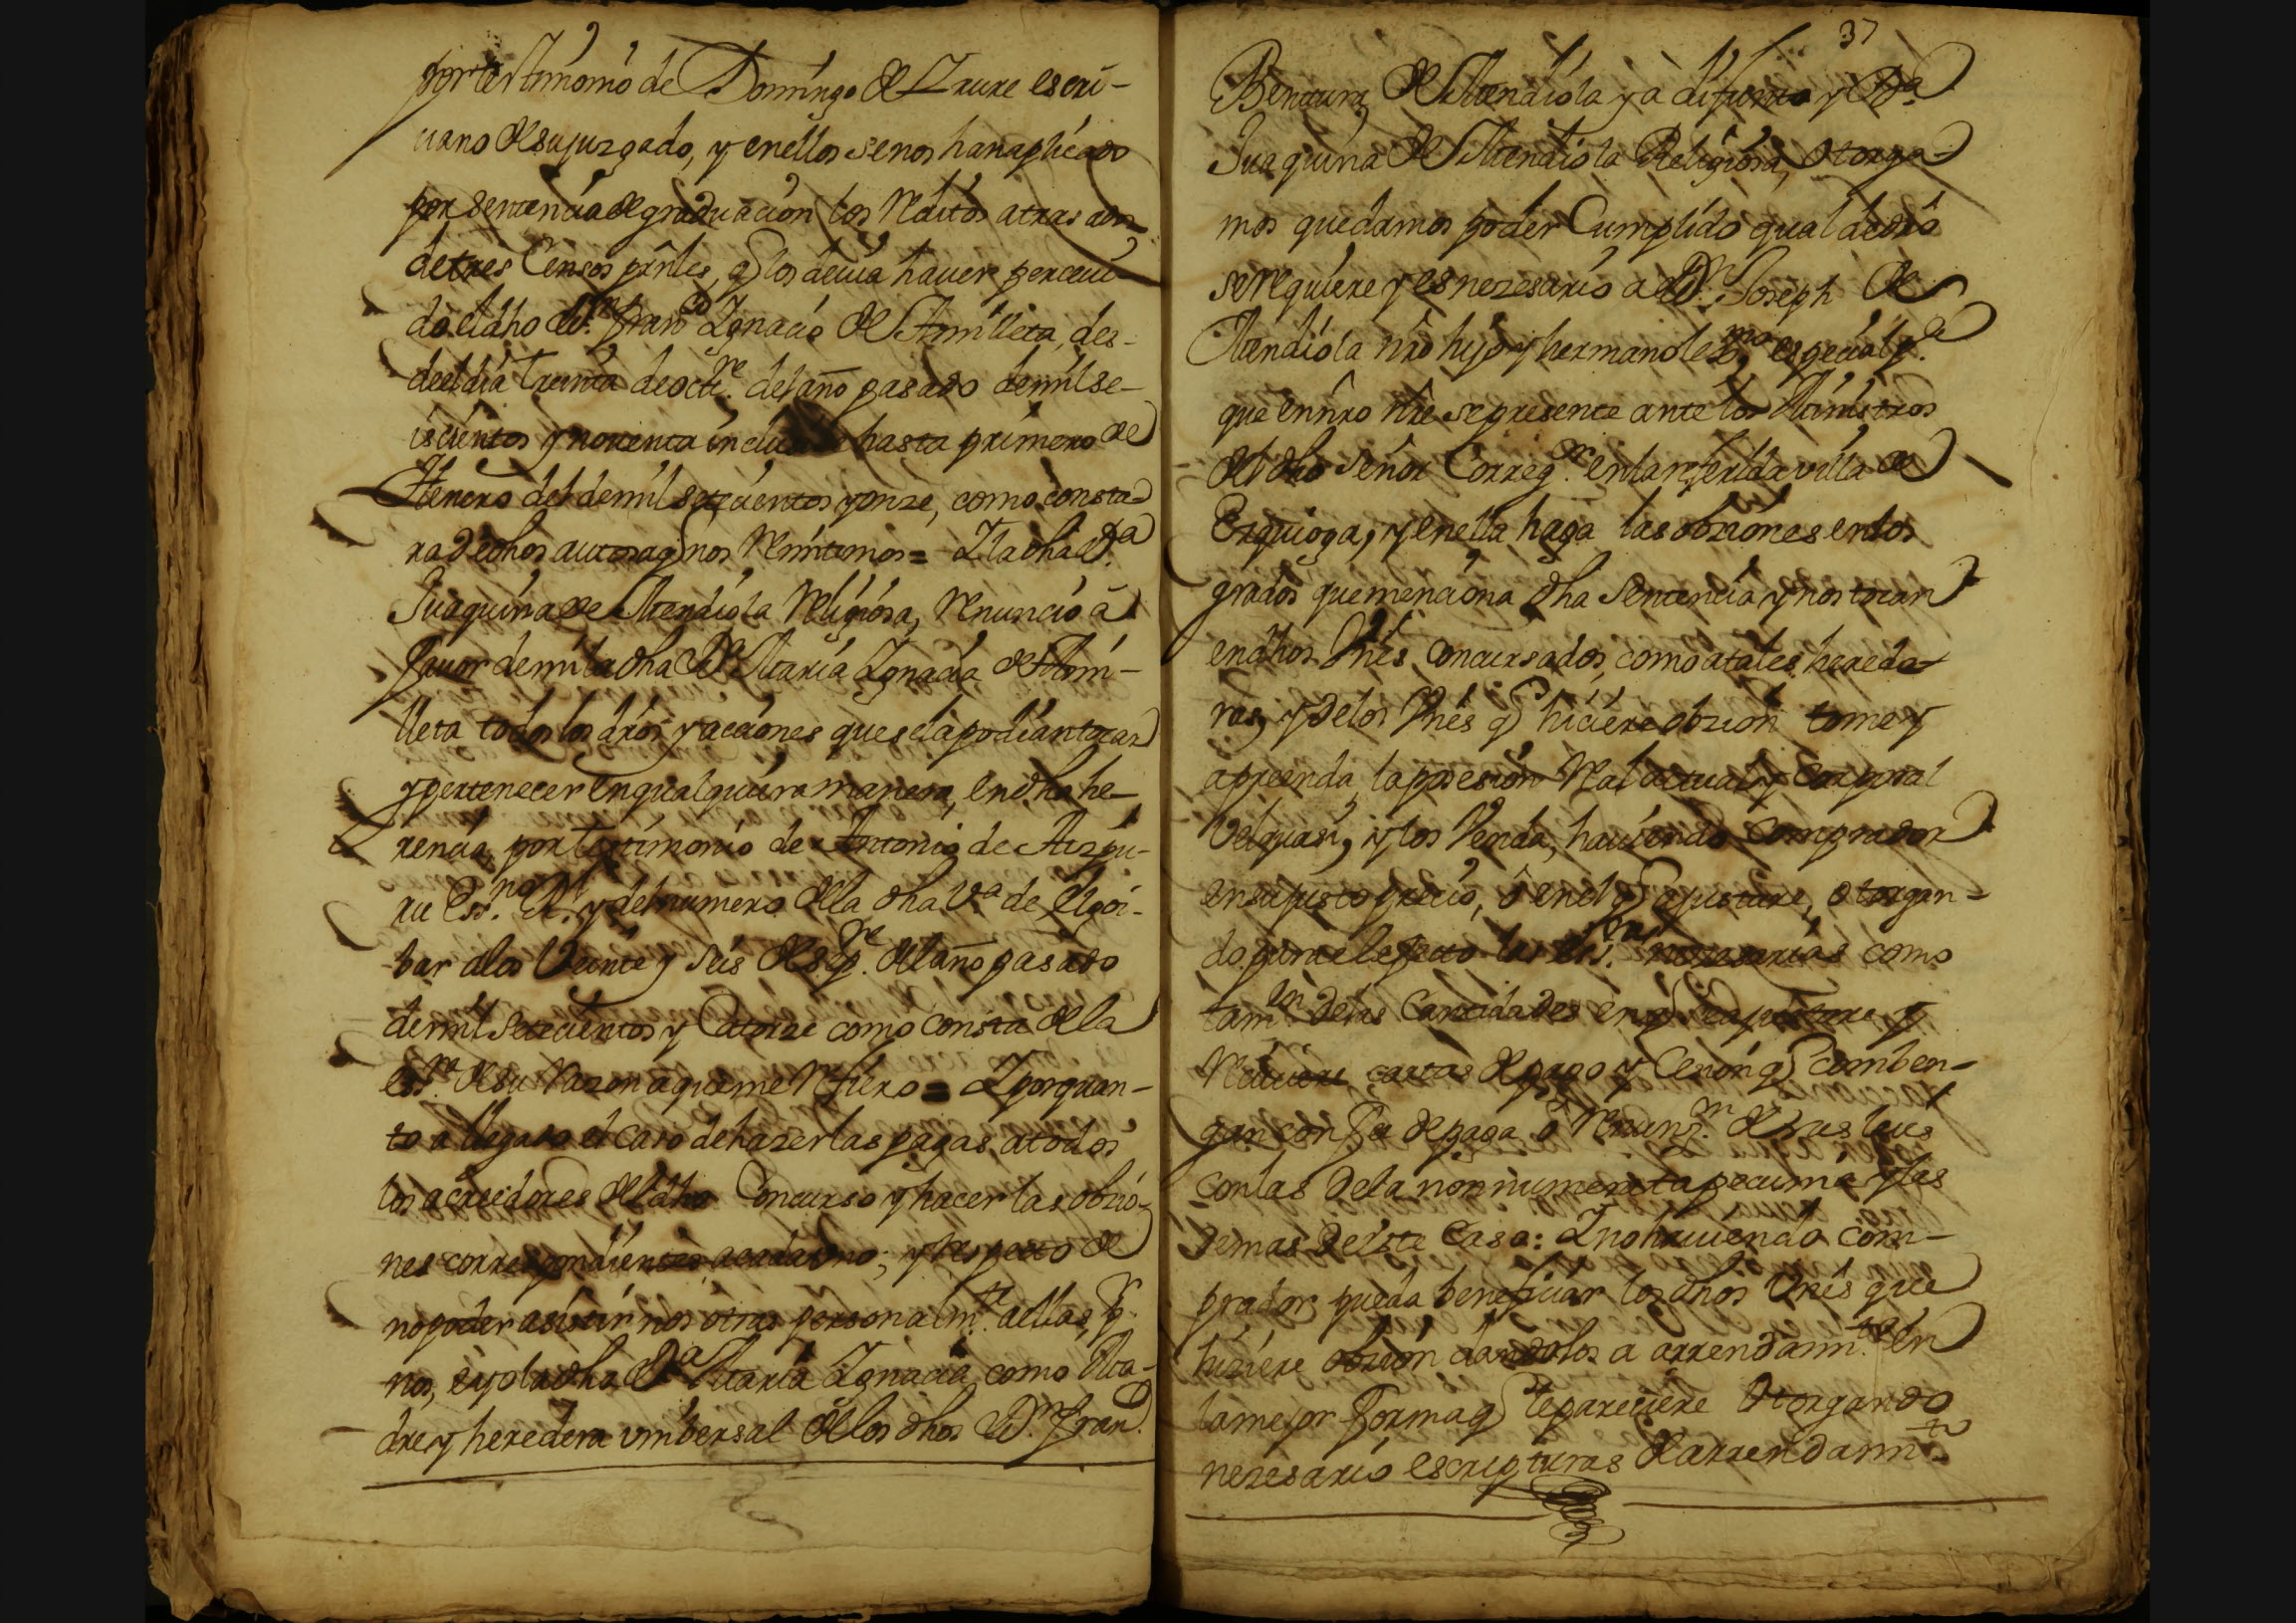 por testimonio de Domingo de Zrure escri-
uano de su juzgado, y enellos senos han aplicado
por sentencia de graduacion los Reditos atrasados
de tres Censos prinles, q los deuia hauer perceui-
do el dho Dn. Franco Ignacio de Almilleta, des-
de el dia treinta de octre. del año pasado de mil se-
iscientos y nouenta inclusive hasta primero de
Henero del de mil setecientos y onze, como consta-
ra de dhos autos aq nos Remitimos = Y la dha Da.
Juaquina de Mendiola Religiosa, Renuncio â
fauor de mi la dha Da Maria Ignacia de Almi-
lleta todos los drôs y acciones que sela podian tocar
y pertenecer en qualquiera manera, en dha he-
rencia, por testimonio de Antonio de Aizpu-
ru Essno. Rl. y del numero de la dha Va. de Elgoi-
bar a los Veinte y seis de Sepe. del año pasado
de mil setecientos y Catorze como consta de la
essra. de su Razon a que me Refiero = Y por quan-
to a llegado el caso de hazer las pagas, a todos
los acreedores del dho Concurso y hacer las obzio-
nes correspondientes a cada vno; y Respecto de
no poder asistir nos otras personalmte. a ellas, pr.
nos, e yo la dha Da Maria Ignacia, como Ma-
dre y heredera vnibersal de los dhos Dn. Franco.
37
Bentura de Mendiola ya difunto y Da.
Juaquina de Mendiola Religiosa, Otorga-
mos que damos poder Cumplido qual de dro
se Requiere y es nezesario a Dn. Joseph de
Mendiola nro hijo y hermano lexmo, especial pa.
que en nro nre se presente ante los Ministros
del dho señor Corregor. en la referida villa de
Ezquioga, y en ella haga las obziones en los
grados que menciona dha Sentencia y nos tocan
en dhos Vnês Concursados, como a tales hereda-
ras, y de los Vnês q hiciere obzion tome y
aprenda la posesion Real actual y Corporal
Velquasi, y los Venda, hauiendo Comprador
en su justo precio, ô en el q se ajustare, otorgan-
do para el efecto las essras. nezesarias como
tamen de las Cantidades en q se ajustare y
Reciuiere cartas de pago y Cesion q comben-
gan con fee de paga ô Renunzon. de sus leies
con las de la non numerata pecunia y las
demas de este Caso: Y no hauiendo com-
prador pueda beneficiar los dhos Vnês que
hiziere obzion dandolos a arrendamto. en
la mejor forma q le pareciere Otorgando
nezesario escripturas de arrendamto.